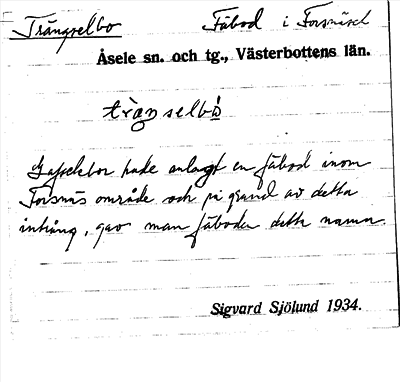 Trångselbo Fäbod i Forsnäset
Åsele sn. och tg., Västerbottens län.
trängselbo
hade anlagt en fäbod inom
Forsnäs område och på grund av detta
intrång, gav man fäboden detta namn.
Sigvard Sjölund 1934.